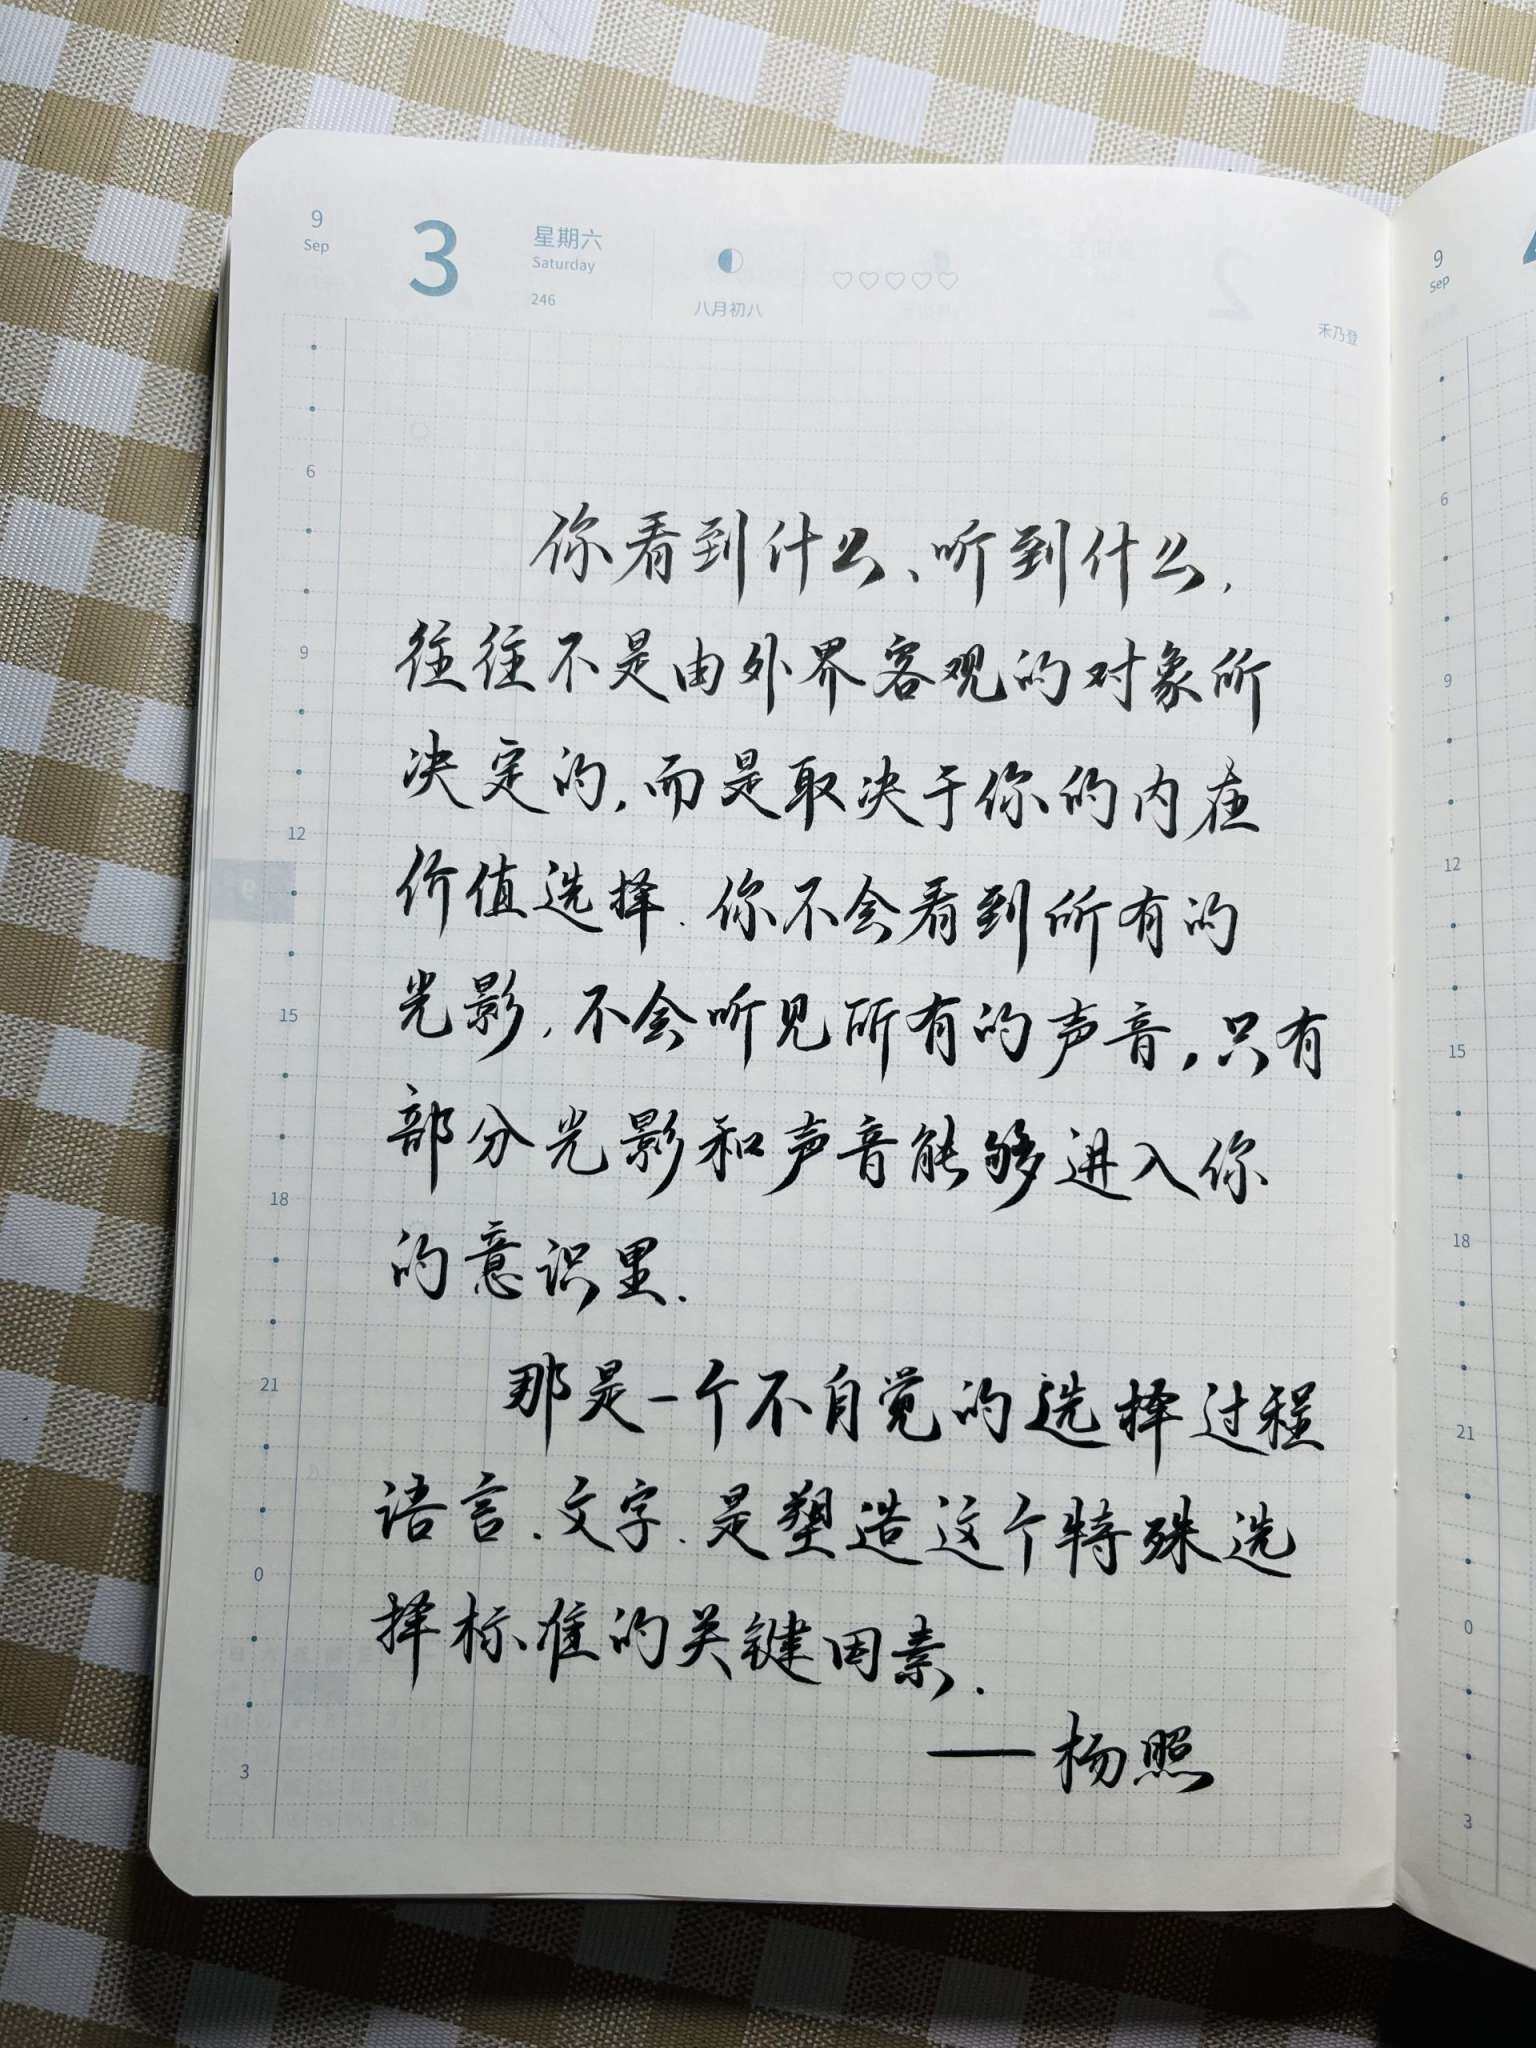 9
Sep
3
星期六
Saturday
246
八月初八
禾乃登
你看到什么、听到什么,
往往不是由外界客观的对象所
决定的,而是取决于你的内在
价值选择.你不会看到所有的
光影,不会听见所有的声音,只有
部分光影和声音能够进入你
的意识里.
那是一个不自觉的选择过程
语言.文字.是塑造这个特殊选
择标准的关键因素.
——杨照
6
9
12
15
18
21
0
3
9
Sep
6
9
12
15
18
21
0
3